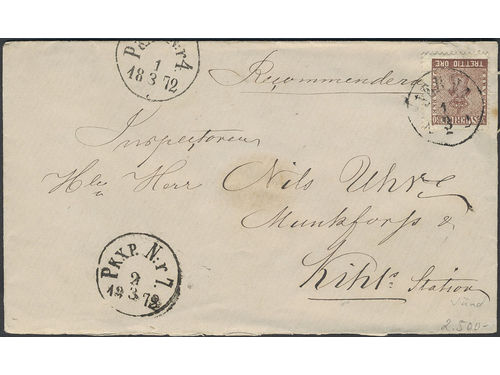 PKXP. N:r 4.
1
18 3 72
Recommenderas
TRETTIO ÖRE
1
Inspectoren
Herr Nils Uhr
Munkfors &
Kihls Station
PKXP. N:r 7.
2
18 3 72
2.500-